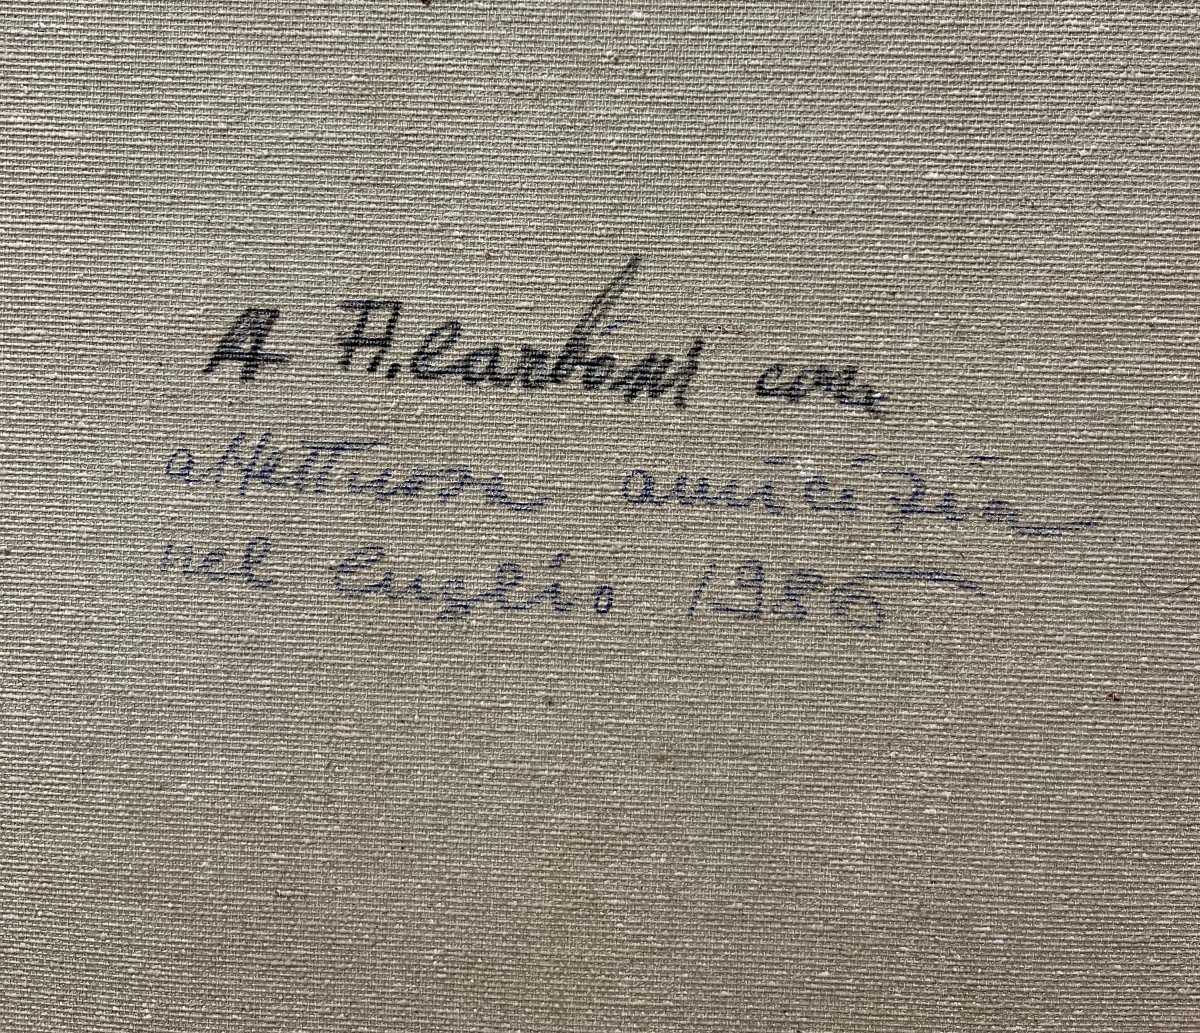 A A. Carboni con
affettuosa amicizia
nel luglio 1986